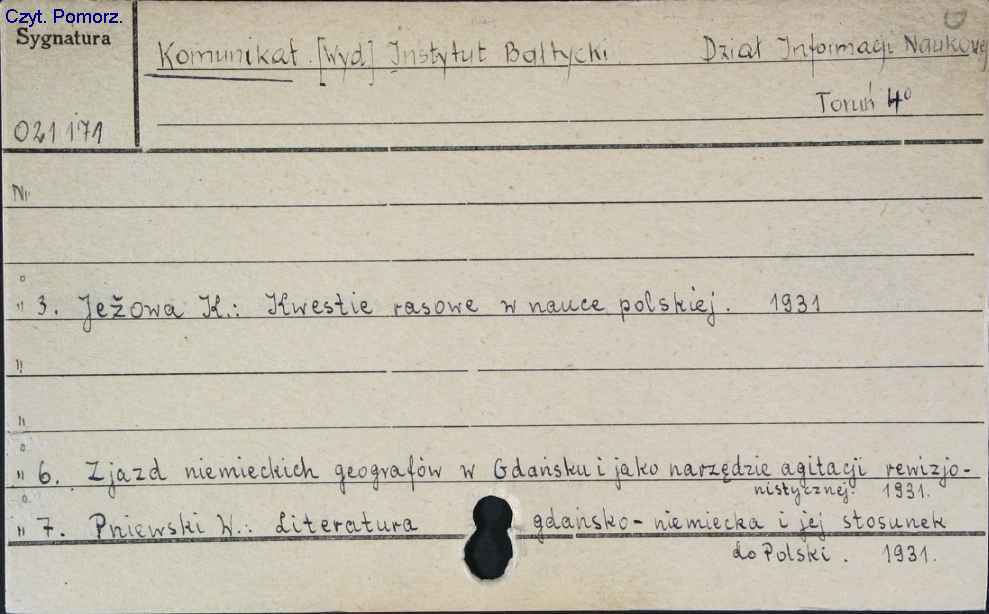 Czyt. Pomorz.
Sygnatura
Komunikat. [Wyd] Instytut Bałtycki Dział Informacji Naukowej
Toruń 4°
021171
Nr
" 3. Jeżowa K.: Kwestie rasowe w nauce polskiej. 1931
"
"
" 6. Zjazd niemieckich geografów w Gdańsku i jako narzędzie agitacji rewizjo-
nistycznej. 1931.
" 7. Pniewski W.: Literatura gdańsko-niemiecka i jej stosunek
do Polski. 1931.